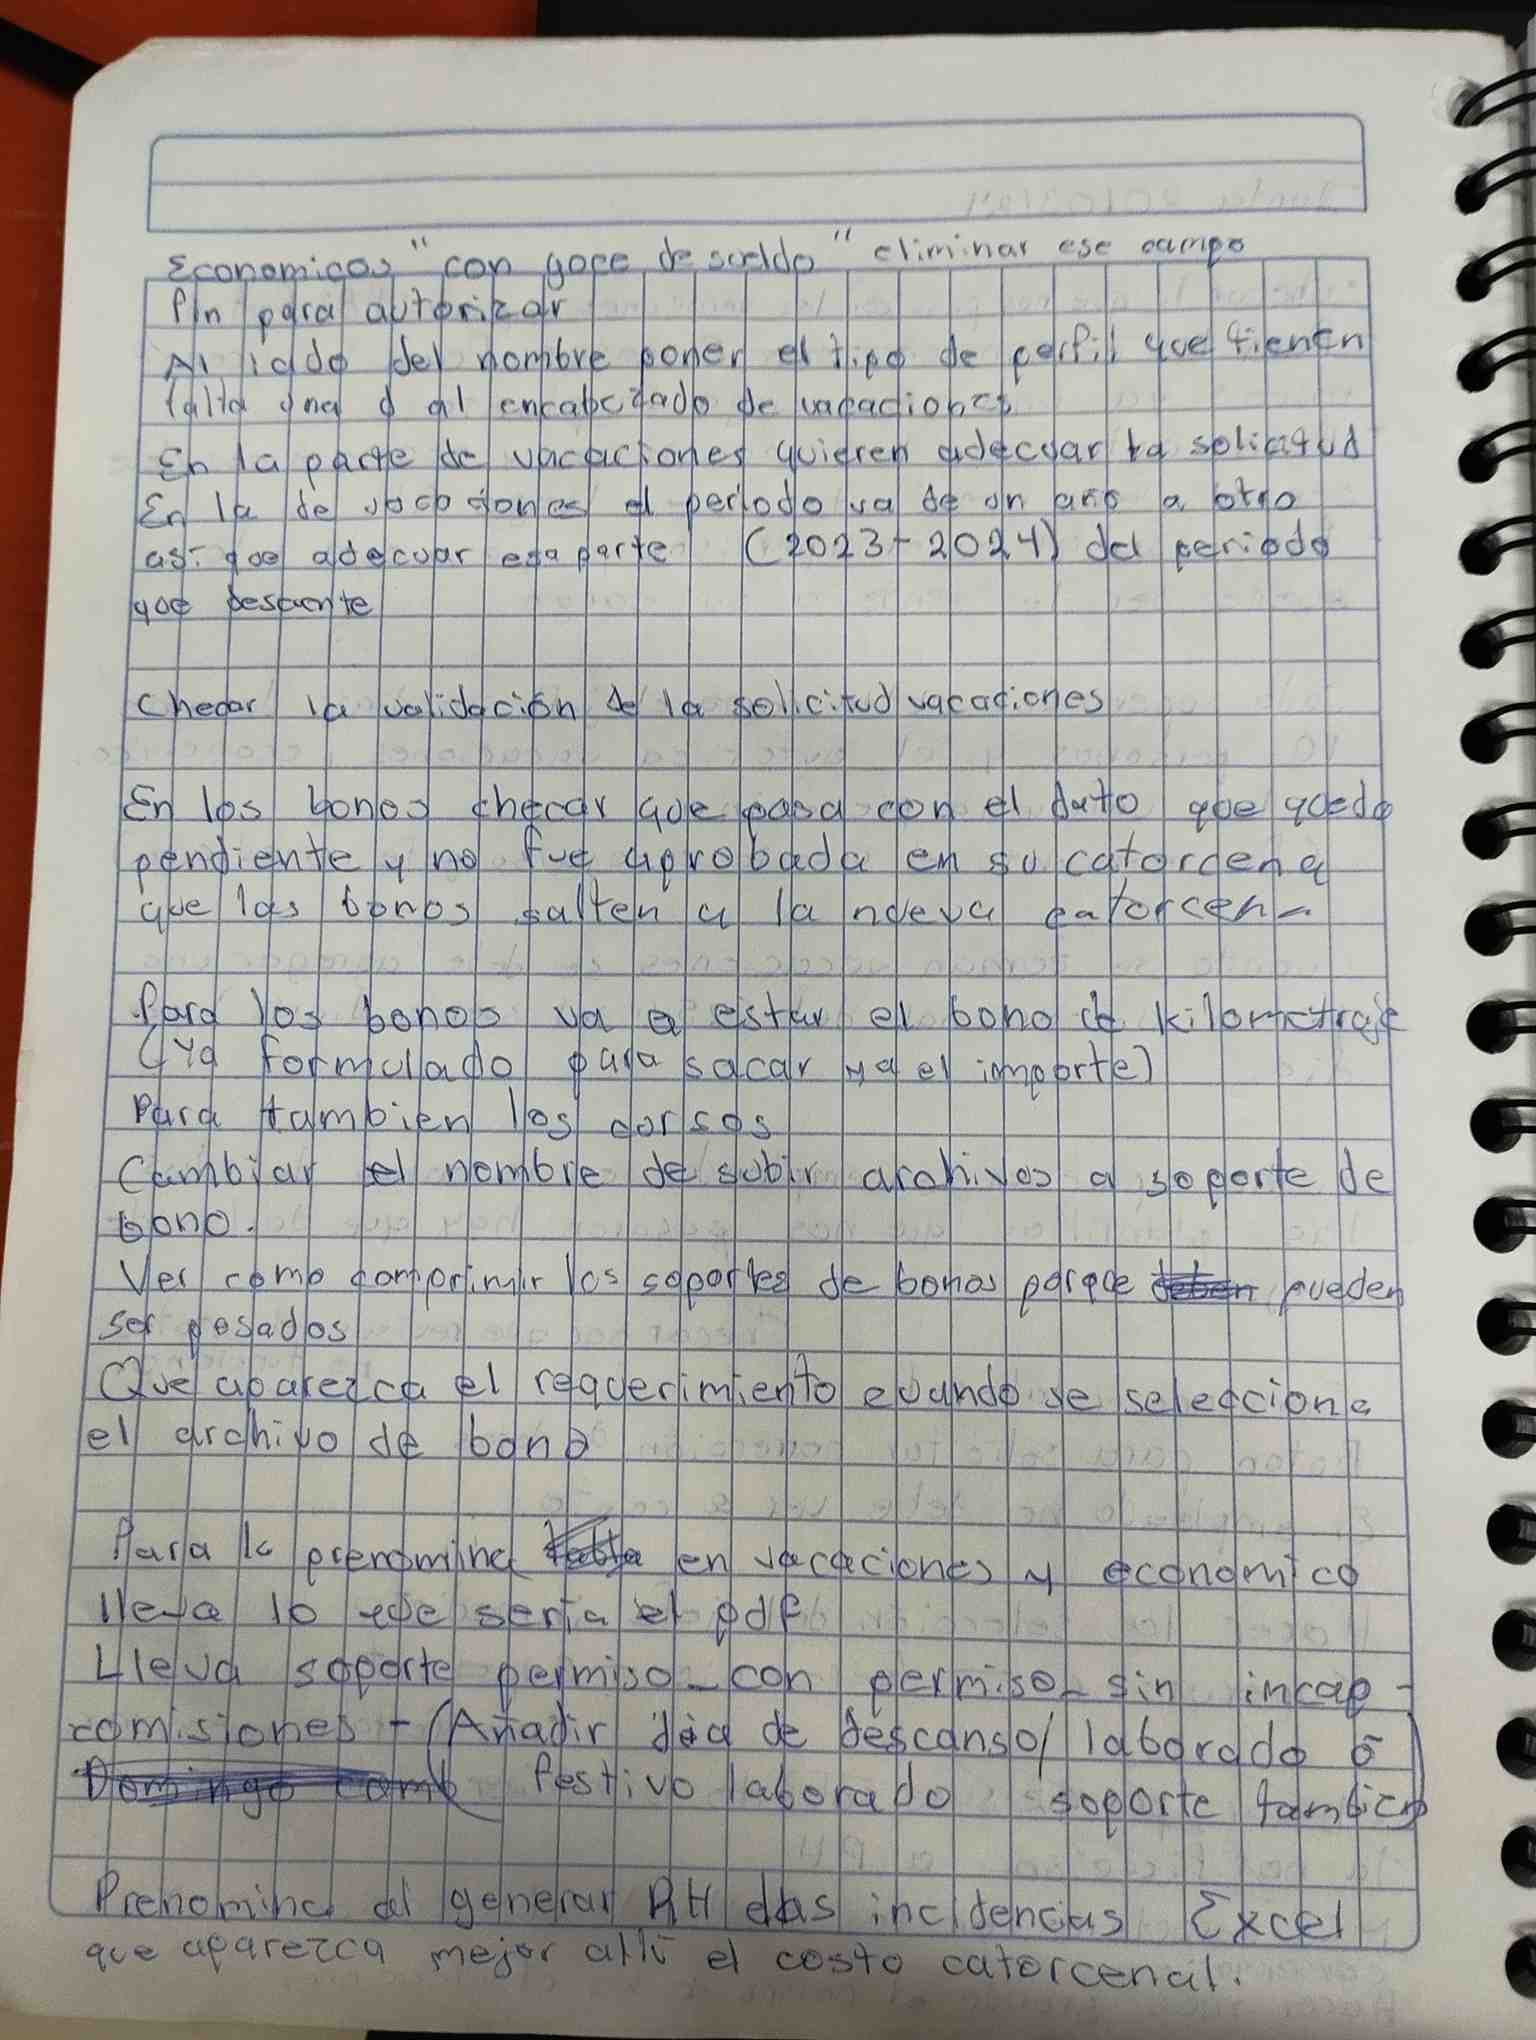 Economicos "con goce de sueldo" eliminar ese campo
Pin para autorizar
Al lado del nombre poner el tipo de perfil que tienen
falta una d al encabezado de vacaciones
En la parte de vacaciones quieren adecuar la solicitud
En la de vacaciones el periodo va de un año a otro
asi que adecuar esa parte (2023-2024) del periodo
que descuente
Checar la validación de la solicitud vacaciones
En los bonos checar que pasa con el dato que quedo
pendiente y no fue aprobada en su catorcena
que los bonos salten a la nueva catorcena
Para los bonos va a estar el bono de kilometraje
(ya formulado para sacar ya el importe)
Para tambien los cursos
Cambiar el nombre de subir archivos a soporte de
bono.
Ver como comprimir los soportes de bonos porque pueden
ser pesados
Que aparezca el requerimiento cuando se selecciona
el archivo de bono
Para la prenomina en vacaciones y economico
lleva lo que seria el pdf
Lleva soporte permiso_con permiso_sin incap-
comisiones - (Añadir dia de descanso/laborado ó
festivo laborado soporte tambien)
Prenomina al generar RH las incidencias Excel
que aparezca mejor alli el costo catorcenal.